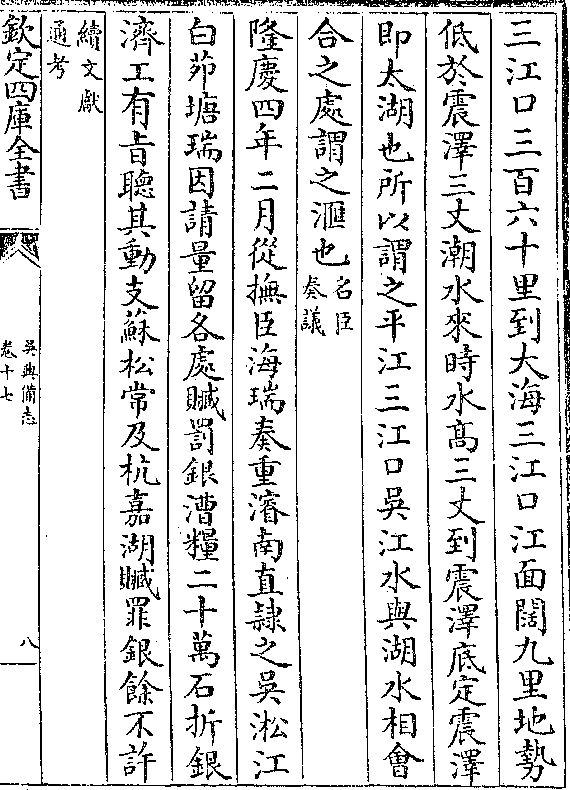 三江口三百六十里到大海三江口江面闊九里地勢
低於震澤三丈潮水來時水髙三丈到震澤底定震澤
即太湖也所以謂之平江三江口吳江水與湖水相會
合之處謂之滙也名臣
奏議
隆慶四年二月從撫臣海瑞奏重濬南直隸之吳淞江
白茆塘瑞因請量留各處贓罰銀漕糧二十萬石折銀
濟工有旨聽其動支蘇松常及杭嘉湖贓罪銀餘不許
續文獻
通考
欽定四庫全書
吳興備志
卷十七
八